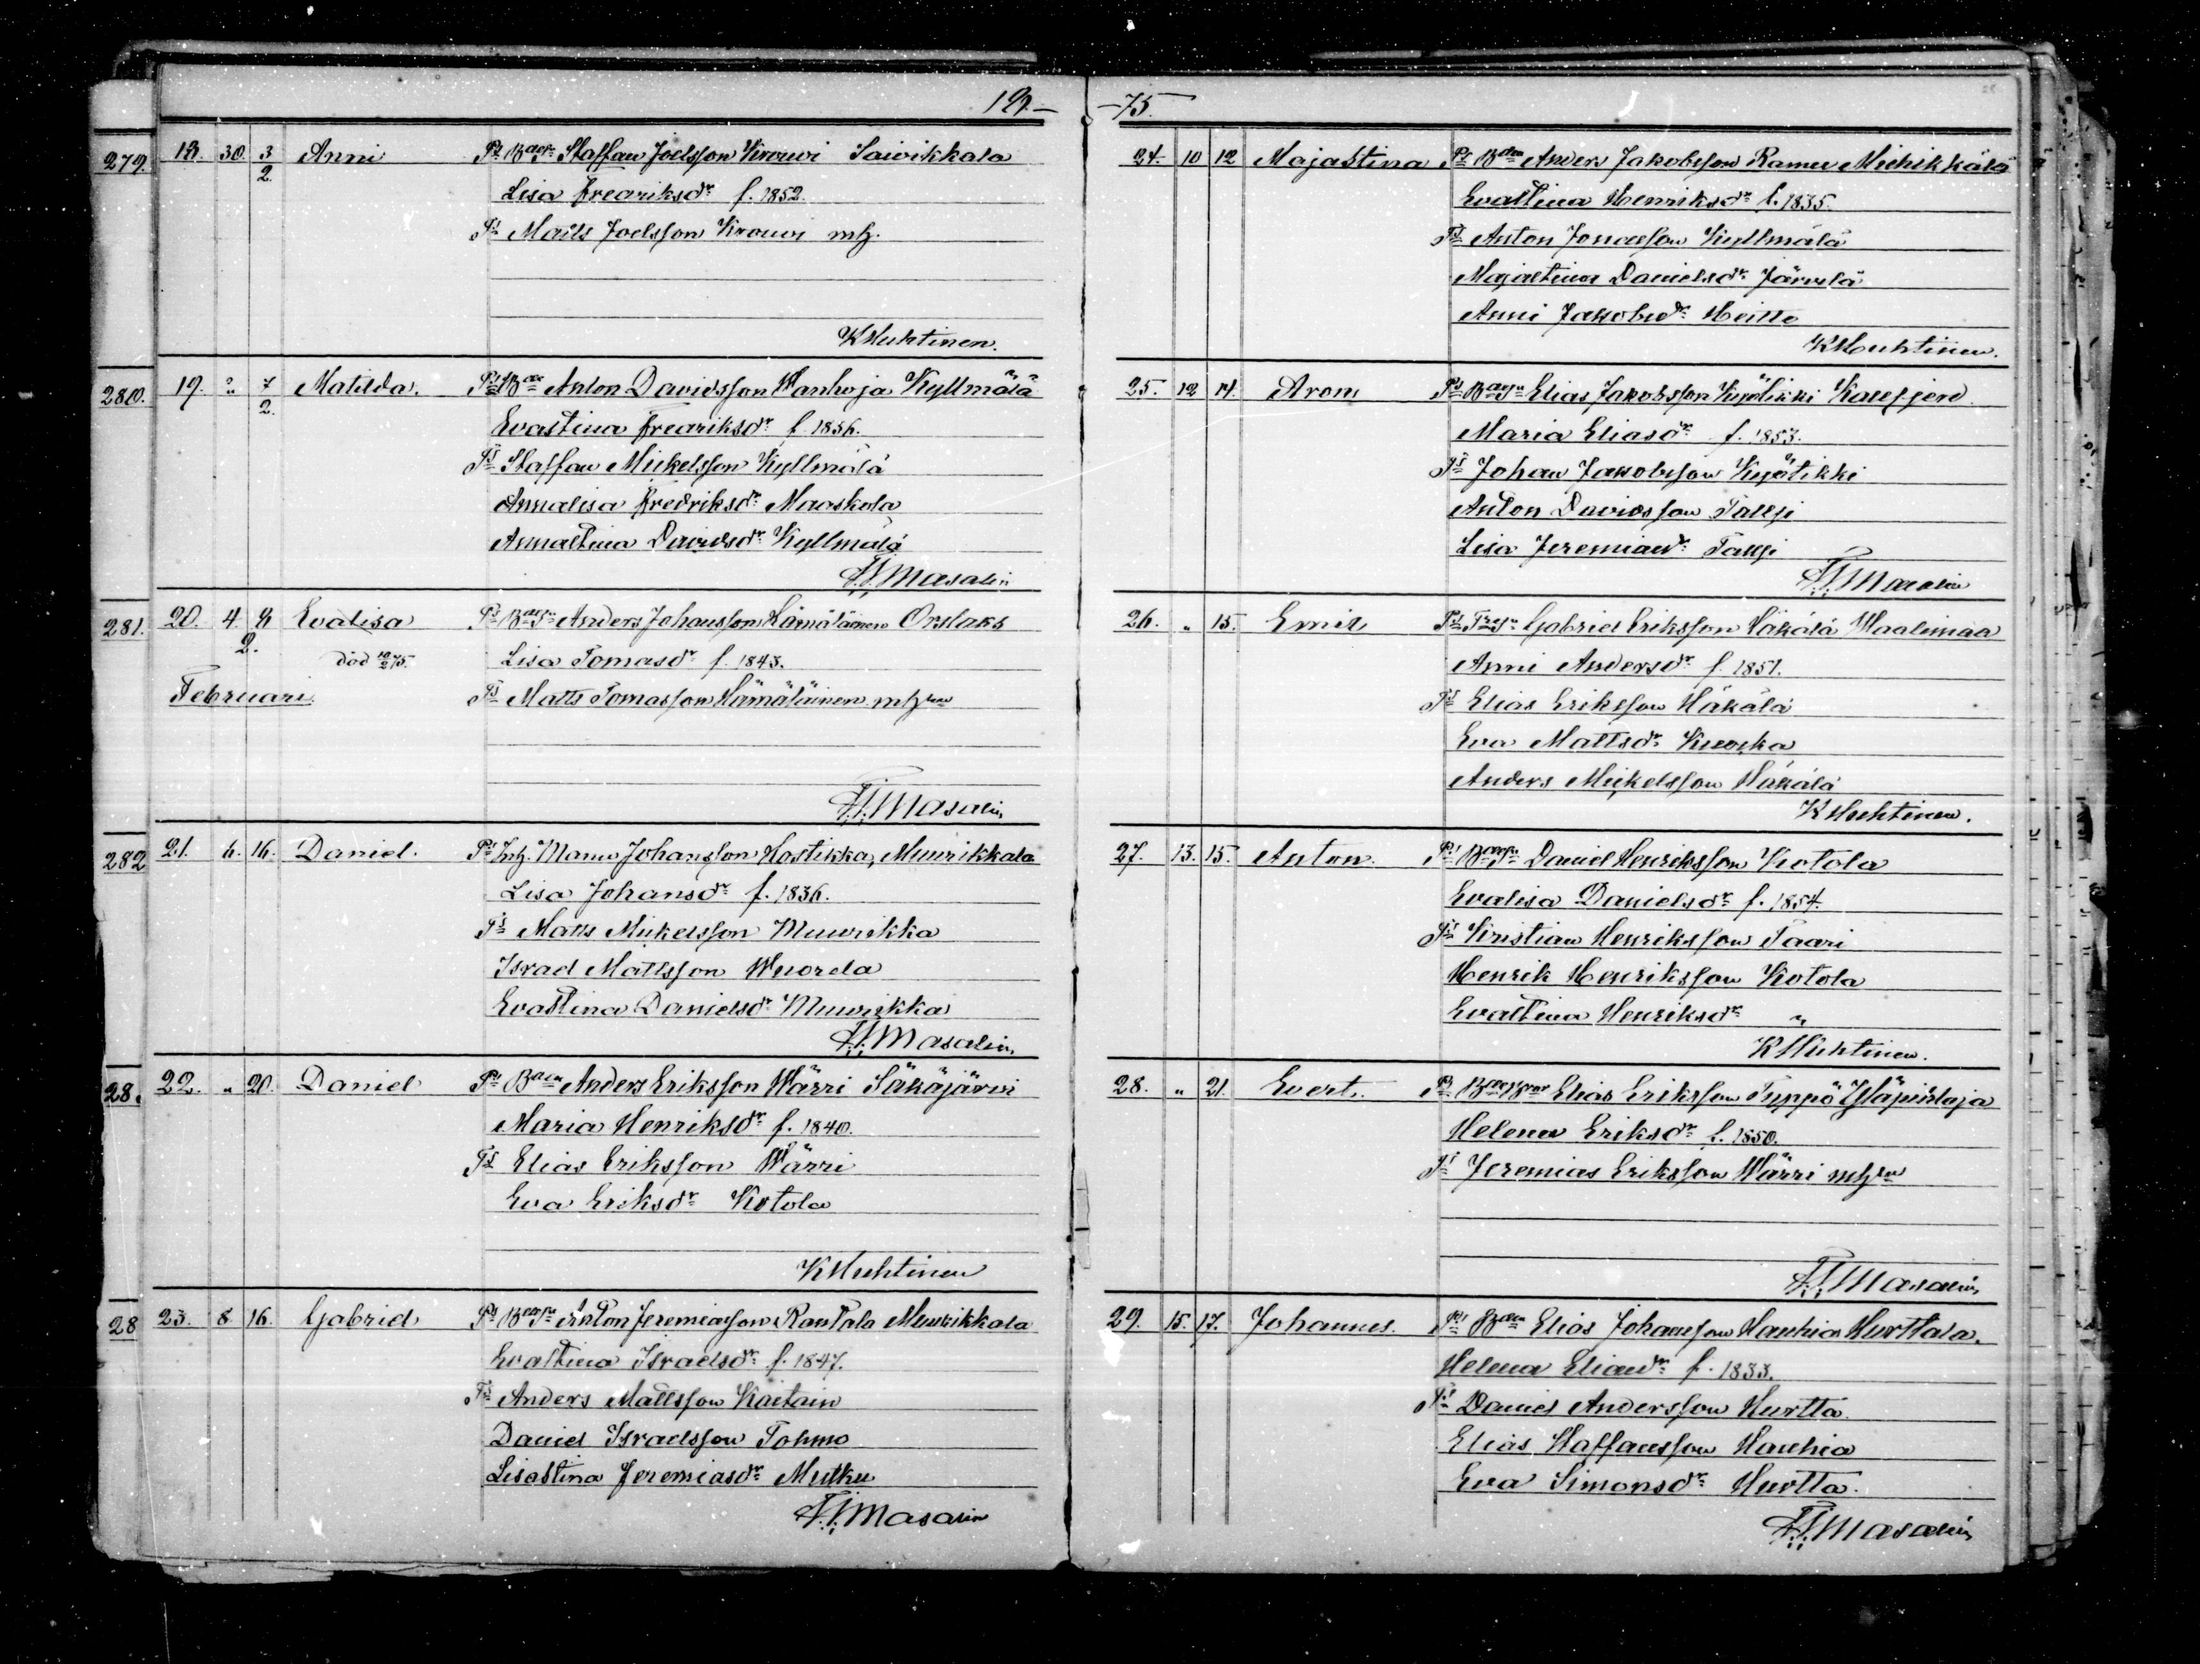 19.— —75.
279. 18. 30. 3/2. Anni Staffan Joelsson Saivikkala
Lisa Fredriksdr f. 1852.
Matts Joelsson mh.
KHuhtinen.
280. 19. " 7/2. Matilda. Anton Davidsson Wanhoja Kyllmälä
Evastina Fredriksdr f. 1836.
Staffan Mickelsson Kyllmälä
Annalisa Fredriksdr Maoskola
Annastina Davidsdr Kyllmälä
Masalin
281. 20. 4. Evalisa Anders Johansson Hämäläinen Orslaks
död 10/2 75. Lisa Tomasdr f. 1843.
Februari. Matts Tomasson Hämäläinen
Masalin
282 21. 6. 16. Daniel. Johansson Hostikka, Muurikkala
Lisa Johansdr f. 1836.
Matts Mickelsson Muurikka
Israel Mattsson Wuorela
Evastina Danielsdr Muurikka
Masalin
28 22. " 20. Daniel Anders Eriksson Wärri Säkäjärwi
Maria Henriksdr f. 1840.
Elias Eriksson Wärri
Eva Eriksdr Kotola
KHuhtinen
28 23. 8. 16. Gabriel Anton Jeremiasson Rantala Muurikkala
Evastina Israelsdr f. 1847.
Anders Mattsson Kaitain
Daniel Israelsson Tohmo
Lisastina Jeremiasdr Mutku
Masalin
24. 10 12 Majastina Anders Jakobsson Ramu Miehikkälä
Evastina Henriksdr f. 1835.
Anton Jonasson Kyllmälä
Majastina Danielsdr Järvelä
Anni Jakobsdr Heitto
KHuhtinen.
25. 12 14. Aron Elias Jakobsson Kyötikki
Maria Eliasdr f. 1853.
Johan Jakobsson Kyötikki
Anton Davidsson Tallji
Lisa Jeremiasdr Tallji
Masalin
26. " 15. Emil Gabriel Eriksson Häkälä Waalimaa
Anni Andersdr f. 1851.
Elias Eriksson Häkälä
Eva Mattsdr Kuokka
Anders Mickelsson Häkälä
KHuhtinen.
27. 13. 15. Anton. Daniel Henriksson Kotola
Evalisa Danielsdr f. 1854.
Kristian Henriksson Taari
Henrik Henriksson Kotola
Evastina Henriksdr "
KHuhtinen.
28. " 21. Evert. Elias Eriksson Typpö Yläpihlaja
Helena Eriksdr f. 1850.
Jeremias Eriksson Wärri
Masalin
29. 15. 17. Johannes. Elias Johansson Hanhia Hurttala.
Helena Eliasdr f. 1833.
Daniel Andersson Hurtta.
Elias Staffansson Hanhia
Eva Simonsdr Hurtta.
Masalin